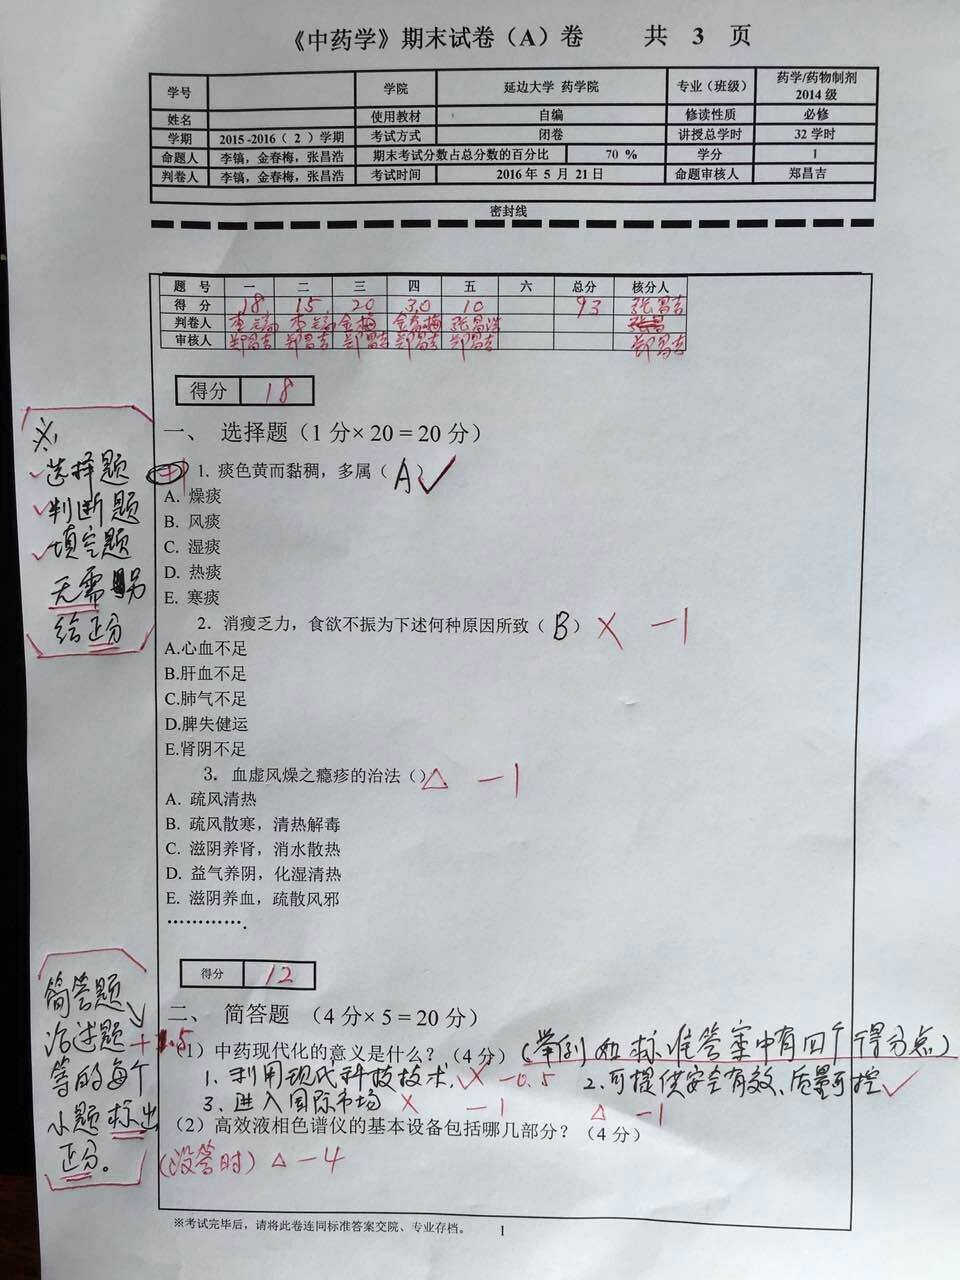 《中药学》期末试卷（A）卷 共 3 页
学号 学院 延边大学 药学院 专业（班级） 药学/药物制剂 2014 级
姓名 使用教材 自编 修读性质 必修
学期 2015-2016（ 2 ）学期 考试方式 闭卷 讲授总学时 32 学时
命题人 李镐，金春梅，张昌浩 期末考试分数占总分数的百分比 70 % 学分 1
判卷人 李镐，金春梅，张昌浩 考试时间 2016 年 5 月 21 日 命题审核人 郑昌吉
密封线
题 号 一 二 三 四 五 六 总分 核分人
得 分 18 15 20 30 10 93 张昌吉
判卷人 李镐 李镐 金梅 金春梅 张昌浩
审核人 郑昌吉 郑昌吉 郑昌吉 郑昌吉 郑昌吉 郑昌吉
得分 18
一、 选择题（1 分× 20 = 20 分）
※
选择题
判断题
填空题
无需另
给正分
+1 1. 痰色黄而黏稠，多属（ A ）✓
A. 燥痰
B. 风痰
C. 湿痰
D. 热痰
E. 寒痰
2．消瘦乏力，食欲不振为下述何种原因所致（ B ） × －1
A.心血不足
B.肝血不足
C.肺气不足
D.脾失健运
E.肾阴不足
3．血虚风燥之瘾疹的治法（） △ －1
A. 疏风清热
B. 疏风散寒，清热解毒
C. 滋阴养肾，消水散热
D. 益气养阴，化湿清热
E. 滋阴养血，疏散风邪
………….
得分 12
二、 简答题 （4 分× 5 = 20 分）
简答题
论述题
等的每个
小题标出
正分。
+1.5
（1）中药现代化的意义是什么？（4 分）（举例如标准答案中有四个得分点）
1. 利用现代科技技术. × －0.5 2. 可提供安全有效、质量可控 ✓
3. 进入国际市场 × －1 △ －1
（2）高效液相色谱仪的基本设备包括哪几部分？（4 分）
（没答时）△ －4
※考试完毕后，请将此卷连同标准答案交院、专业存档。 1